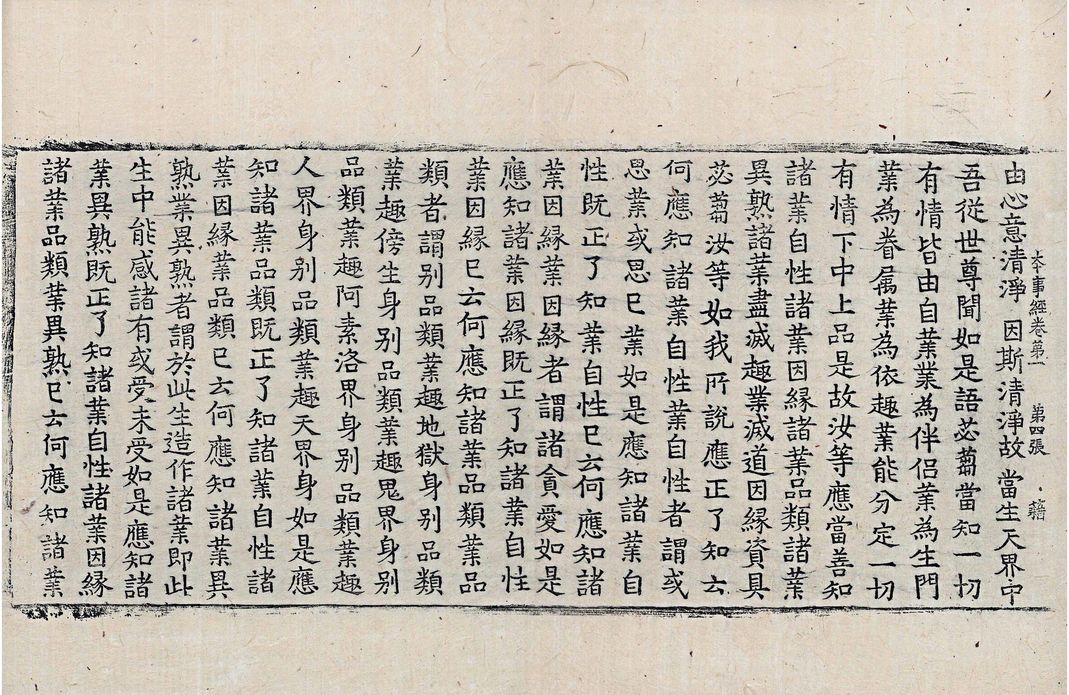 本事經卷第一　第四張　籍
由心意清淨　因斯清淨故　當生天界中
吾從世尊聞如是語苾蒭當知一切
有情皆由自業業為伴侶業為生門
業為眷屬業為依趣業能分定一切
有情下中上品是故汝等應當善知
諸業自性諸業因縁諸業品類諸業
異熟諸業盡滅趣業滅道因縁資具
苾蒭汝等如我所說應正了知云
何應知諸業自性業自性者謂或
思業或思已業如是應知諸業自
性既正了知業自性已云何應知諸
業因縁業因縁者謂諸貪愛如是
應知諸業因縁既正了知諸業自性
業因縁已云何應知諸業品類業品
類者謂別品類業趣地獄身別品類
業趣傍生身別品類業趣鬼界身別
品類業趣阿素洛界身別品類業趣
人界身別品類業趣天界身如是應
知諸業品類既正了知諸業自性諸
業因縁業品類已云何應知諸業異
熟業異熟者謂於此生造作諸業即此
生中能感諸有或受未受如是應知諸
業異熟既正了知諸業自性諸業因縁
諸業品類業異熟已云何應知諸業